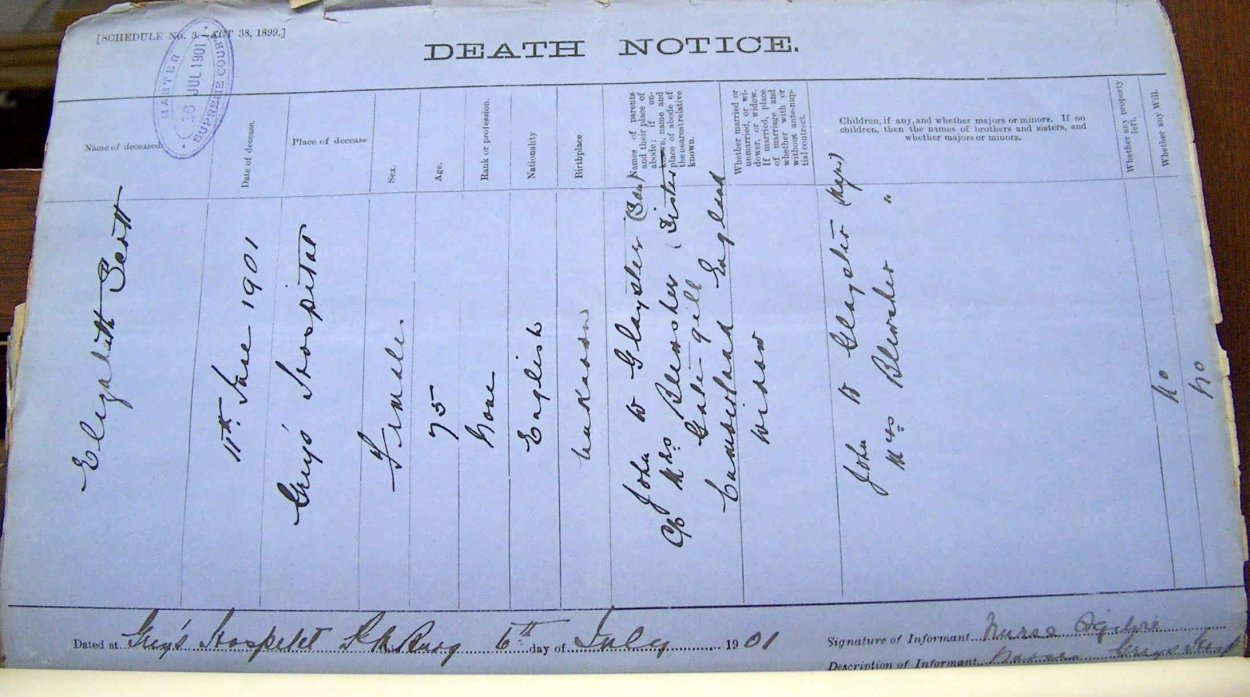 [SCHEDULE No. 3.—ACT 38, 1899.]
DEATH NOTICE.
MASTER
JUL 1901
SUPREME COURT
Name of deceased
Date of decease.
Place of decease
Sex.
Age.
Rank or profession.
Nationality
Birthplace
Names of parents
and their place of
abode; if un-
known, name and
place of abode of
the nearest relative
known.
Whether married or
unmarried, or wi-
dower, or widow.
If married, place
of marriage and
whether with or
without ante-nup-
tial contract.
Children, if any, and whether majors or minors. If no
children, then the names of brothers and sisters, and
whether majors or minors.
Whether any property
left.
Whether any Will.
Elizabeth Scott
11th June 1901
Grey's Hospital
Female.
75
None
English
Unknown
John W Glayster (Son)
c/o Mrs Blewsher (Sister
Gale-gill
Cumberland England
Widow
John W Glayster (Major)
Mrs Blewsher "
no
no
Dated at Grey's Hospital P.M.Burg 6th day of July 1901
Signature of Informant Nurse Ogilvie
Description of Informant Grey's Hosp